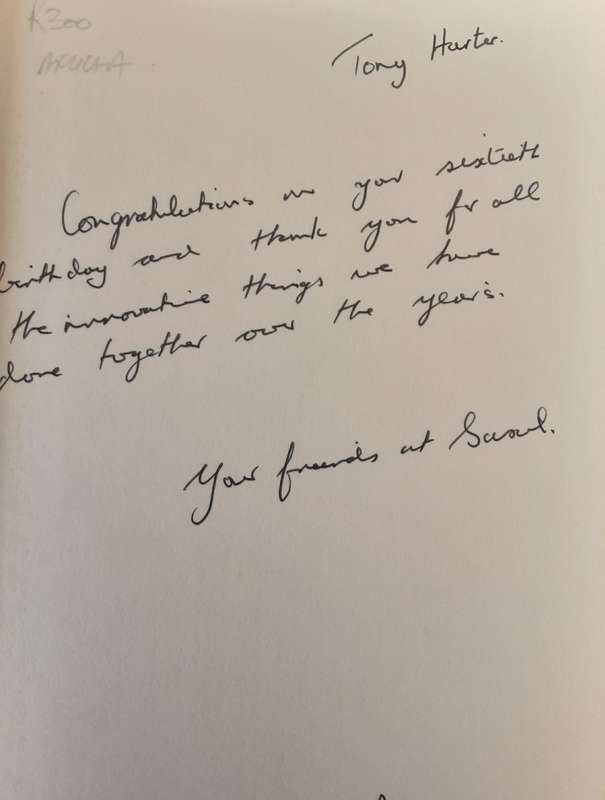 R300
AFRICANA
Tony Harter.
Congratulations on your sixtieth
birthday and thank you for all
the innovative things we have
done together over the years.
Your friends at Sasol.